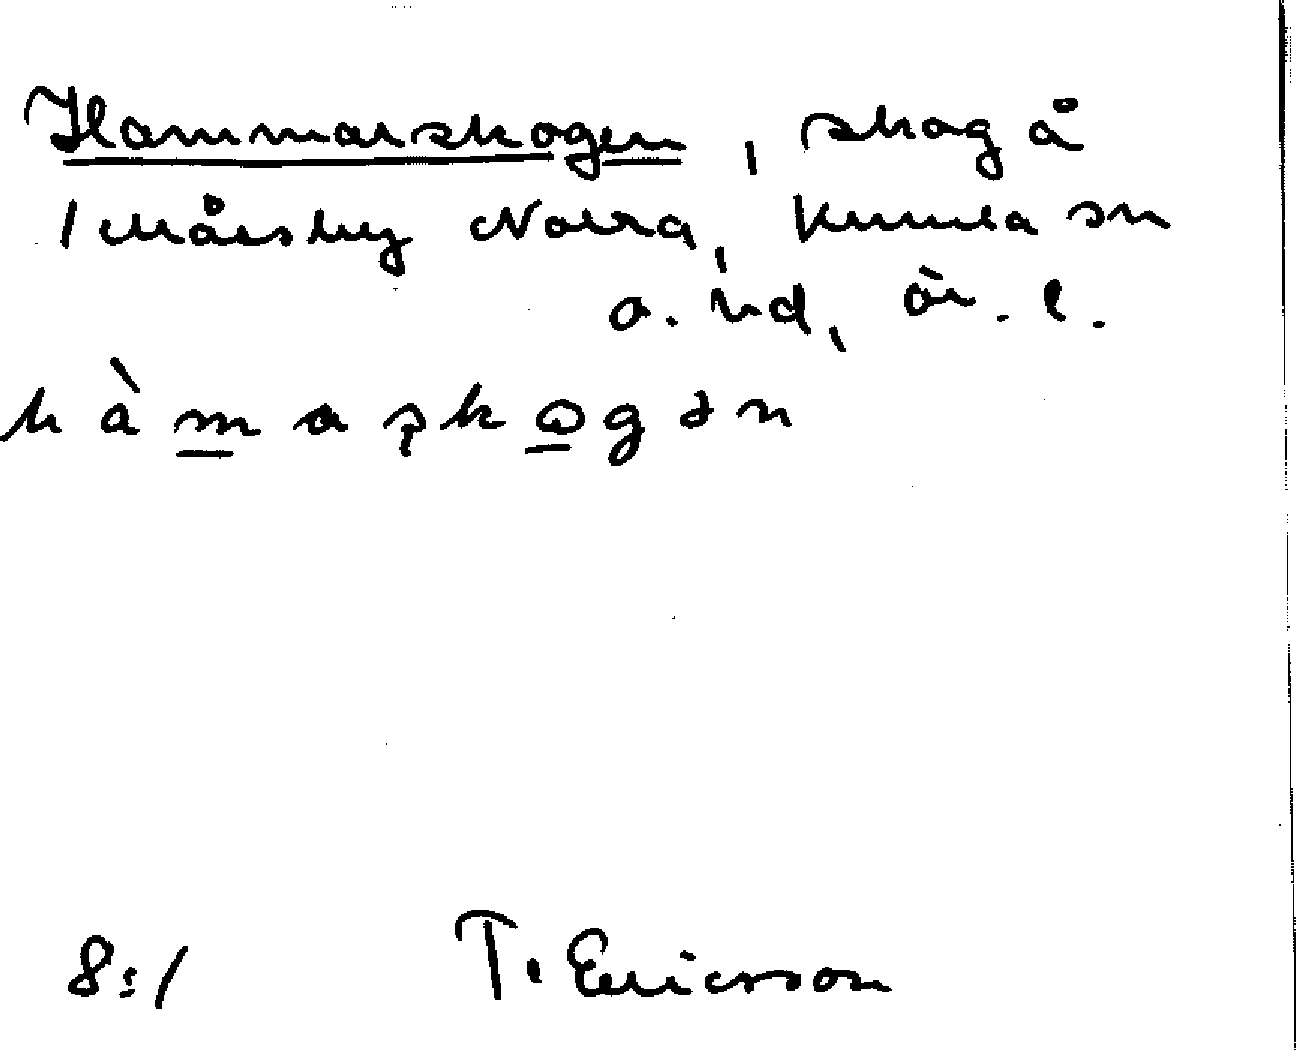 Hammarskogen, skog å
1 Mårsby Norra, Kumla sn
o. hd, Ör. l.
hàmaʂkωgən
8:1 T. Ericsson